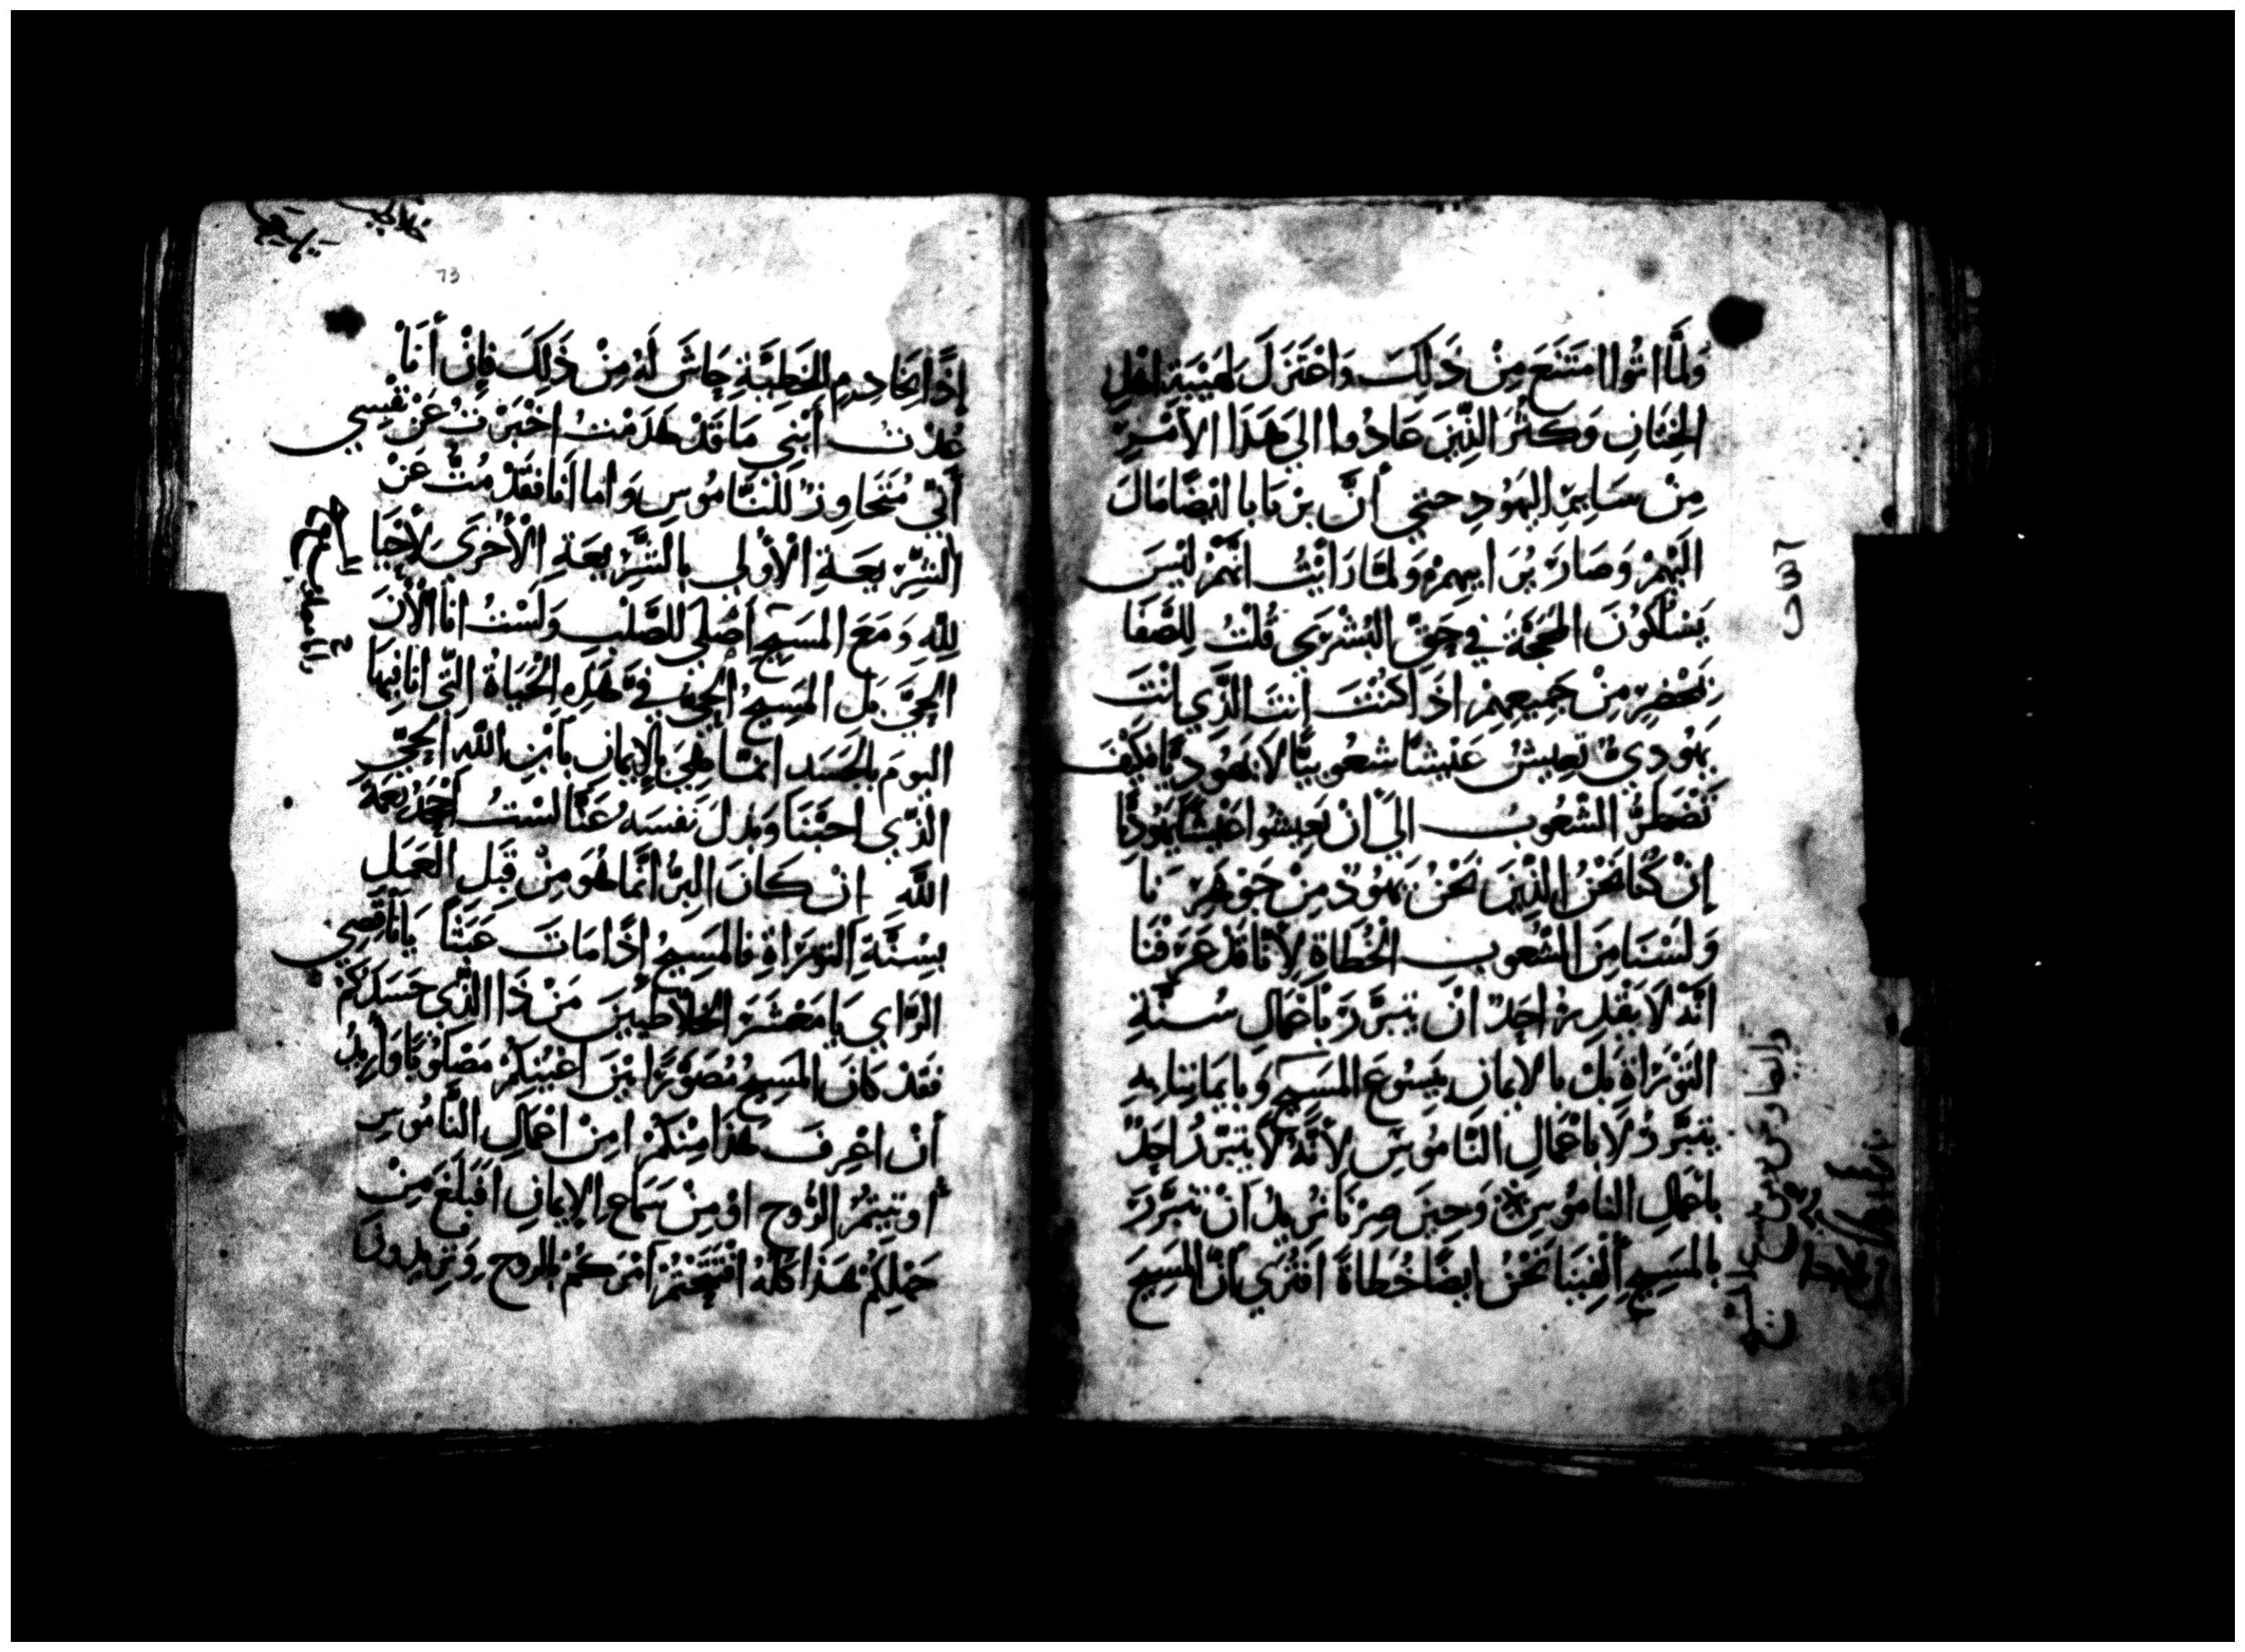 وَلَمَّا اتُوا امتَنَعَ مِنْ ذَلِكَ وَاعْتَزَلَ لِهَيْبَةِ اهْلِ
الخِتَانِ وَكَثُرَ الَّذِينَ عَادُوا الي هَذَا الأَمْرِ
مِنْ سَايِرِ اليَهُودِ حتي أَنَّ بَرْنَابَا ايْضًا مَالَ
الَيْهِمْ وَصَارَ بُرَايِهِمْ وَلَمَّا رَايْتُ انَّهُمْ لَيْسَ
يَسْلُكُونَ المَحَجَّةَ فِي حَقِّ البُشْرَي قُلْتُ لِلصَّفَا
بِمَحْضَرٍ مِنْ جَمِيعِهِمْ اذَا كُنْتَ انتَ الَّذِي انْتَ
يَهُودِيٌ تَعِيشُ عَيْشًا شعُوبيًّا لَا يَهُودِيًّا فكَيْفَ
تَضْطَرُّ الشعُوبَ الَى أَنْ يَعِيشُوا عَيْشًا يَهُودِيًّا
إنْ كُنَّا نَحْنُ الذِّينَ نَحْنُ يَهُودٌ مِنْ جَوْهَرِنَا
وَلَسْنَا مِنَ الشُعُوبِ الخُطَاةِ لِأَنَّا قَدْ عَرَفْنَا
انَّهُ لَا يَقْدِرُ احَدٌ انْ يتبَرَّرَ بِأَعْمَالِ سُنَّةِ
التَّوْرَاةِ بَلْ بالايمانِ بيَسُوعَ المَسِيحِ وَبايمَانِنا بِهِ
يتبَرَّرُ لَا باعْمَالِ النَّامُوسِ لِأَنَّهُ لَا يَتَبَرَّرُ احَدٌ
باعمَالِ النامُوسِ ※ وَحِينَ صِرْنَا نُريدُ انْ نَتبَرَّرَ
بالمَسِيحِ أُلْفِينَا نَحْنُ ايضًا خُطَاةً افَتُرَي انَّ المَسِيحَ
73
إذًا خَادِمٌ لِلخَطِيَّةِ حَاشَى لَهُ مِنْ ذَلِكَ فإِنْ أَنَا
عُدْتُ أَبْنِي مَا قَدْ هَدَمْتُ اخْبَرْتُ عَنْ نَفْسِي
أَنِّي مُتَجَاوِزٌ لِلْنَّامُوسِ وَامَا انَا فَقَدْ مُتُّ عَنْ
الشَّرِيعَةِ الْأُوْلي بِالشَّرِيعَةِ الْأُخْرَى لِأَحْيَا
لِلَّهِ وَمَعَ المَسِيحِ اصْلي للصَّلْبِ وَلَسْتُ انَا الْآنَ
الحَيَّ بَلْ المَسِيحُ الحي فِيَّ هَذِهِ الحُيَاةُ الَّتي انا فِيهَا
اليومَ بالجَسَدِ انمَّا هِيَ بالْإِيمانِ بَابْنِ اللَّهِ الحَيِّ
الذِّي احبَّنَا وَبَذَلَ نَفسَهُ عَنَّا لسْتُ اجْحَدُ نِعْمَةَ
اللَّهِ انْ كَانَ البِرُّ انَّمَا هُوَ مِنْ قِبَلِ العَمَلِ
بسُنَّةِ التَّوْرَاةِ فالمَسِيحُ إذًا مَاتَ عَبَثًا يَا نَاقِصِي
الرَّايِ يَا مَعْشَرَ الغَلَاطِيِّينَ مَنْ ذَا الذِّي حَسَدَكُمْ
فَقَدْ كَانَ المَسِيحُ مُصَوَّرًا بَيْنَ اعْيُنِكُمْ مَصْلُوبًا وَارِيدُ
أَنْ اعْرِفَ هَذَا مِنْكُمْ امِنْ اعْمَالِ النَّامُوسِ
أُوتِيتُمُ الرُّوحَ اوْ مِنْ سَمَاعِ الإيمانِ افَبَلَغَ مِنْ
جَهْلِكُمْ هَذَا كُلِّهُ افْتَتَحْتُمْ امْرَكُمْ بالروحِ وَتريدونَ